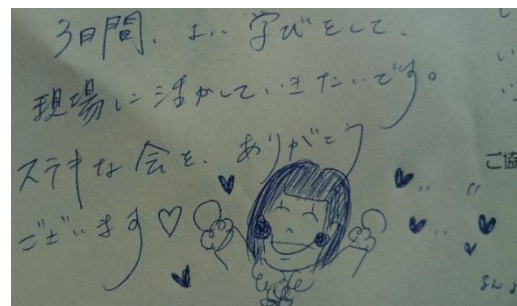 3日間、よい学びをして、
現場に活かしていきたいです。
ステキな会を、ありがとう
ございます♡
ご協